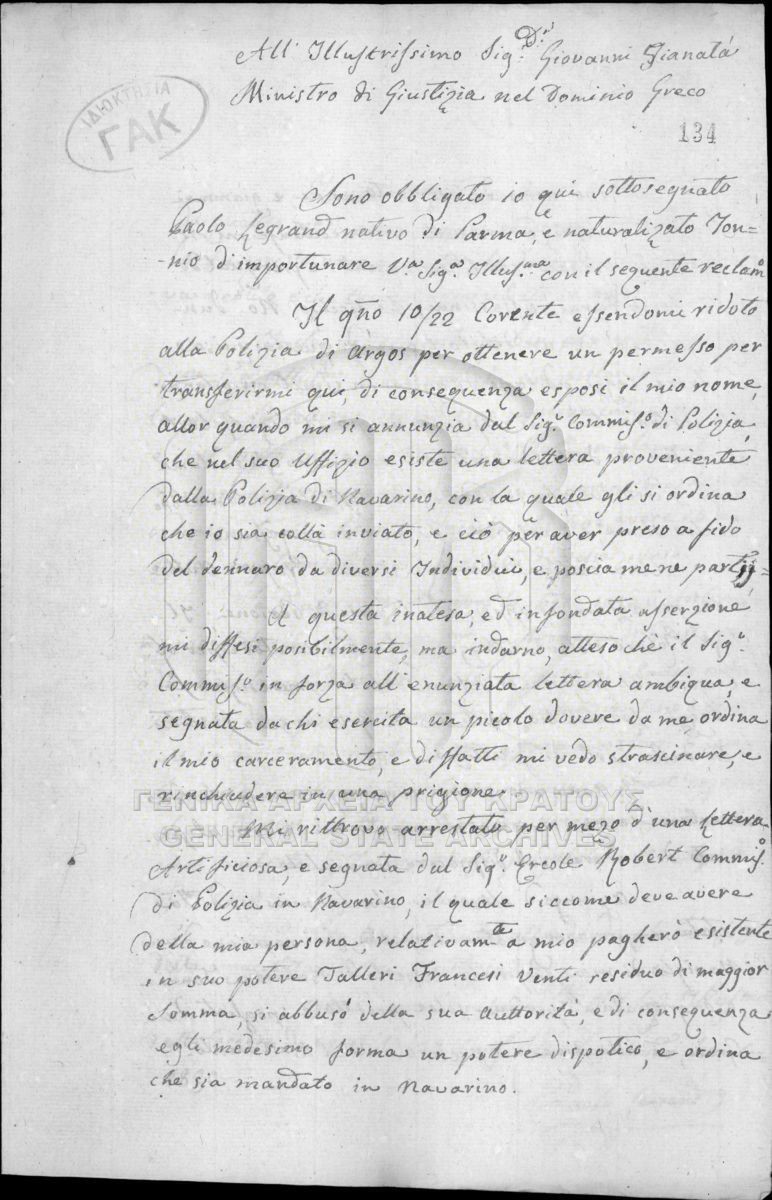 All' Illustrissimo Sig.r D.r Giovanni Gianatà
Ministro di Giustizia nel Dominio Greco
ΙΔΙΟΚΤΗΣΙΑ
ΓΑΚ
134
Sono obbligato io quì sottosegnato
Paolo Legrand nativo di Parma, è naturalizato Jon=
-nio d'importunare V.a Sig.a Illus.ma con il sequente reclamo
Il qño 10/22 Corente essendomi ridoto
alla Polizia di Argos per ottenere un permesso per
transferirmi qui, di consequenza esposi il mio nome,
allor quando mi si annunzia dal Sig.r Commis.o di Polizia,
che nel suo Uffizio esiste una lettera proveniente
dalla Polizia di Navarino, con la quale gli si ordina
che io sia collà inviato, e ciò per aver preso a fido
del dennaro da diversi Individui, e poscia me ne partij=
A questa inatesa, ed infondata asserzione
mi diffesi posibilmente, ma indarno, attesochè il Sig.r
Commis.o in forza all' enunziata lettera ambiqua, e
segnata da chi esercita un picolo dovere da me, ordina
il mio carceramento, e diffatti mi vedo strascinare, e
rinchiudere in una prigione.
ΓΕΝΙΚΑ ΑΡΧΕΙΑ ΤΟΥ ΚΡΑΤΟΥΣ
GENERAL STATE ARCHIVES
Mi rittrovo arrestato per mezo d'una Lettera
Artificiosa, e segnata dal Sig.r Ercole Robert Commis.o
di Polizia in Navarino, il quale siccome deve avere
della mia persona, relativam.te a mio pagherò esistente
in suo potere Talleri Francesi Venti residuo di maggior
Somma, si abbusò della sua Auttorità, e di consequenza
egli medesimo forma un potere dispotico, e ordina
che sia mandato in Navarino.